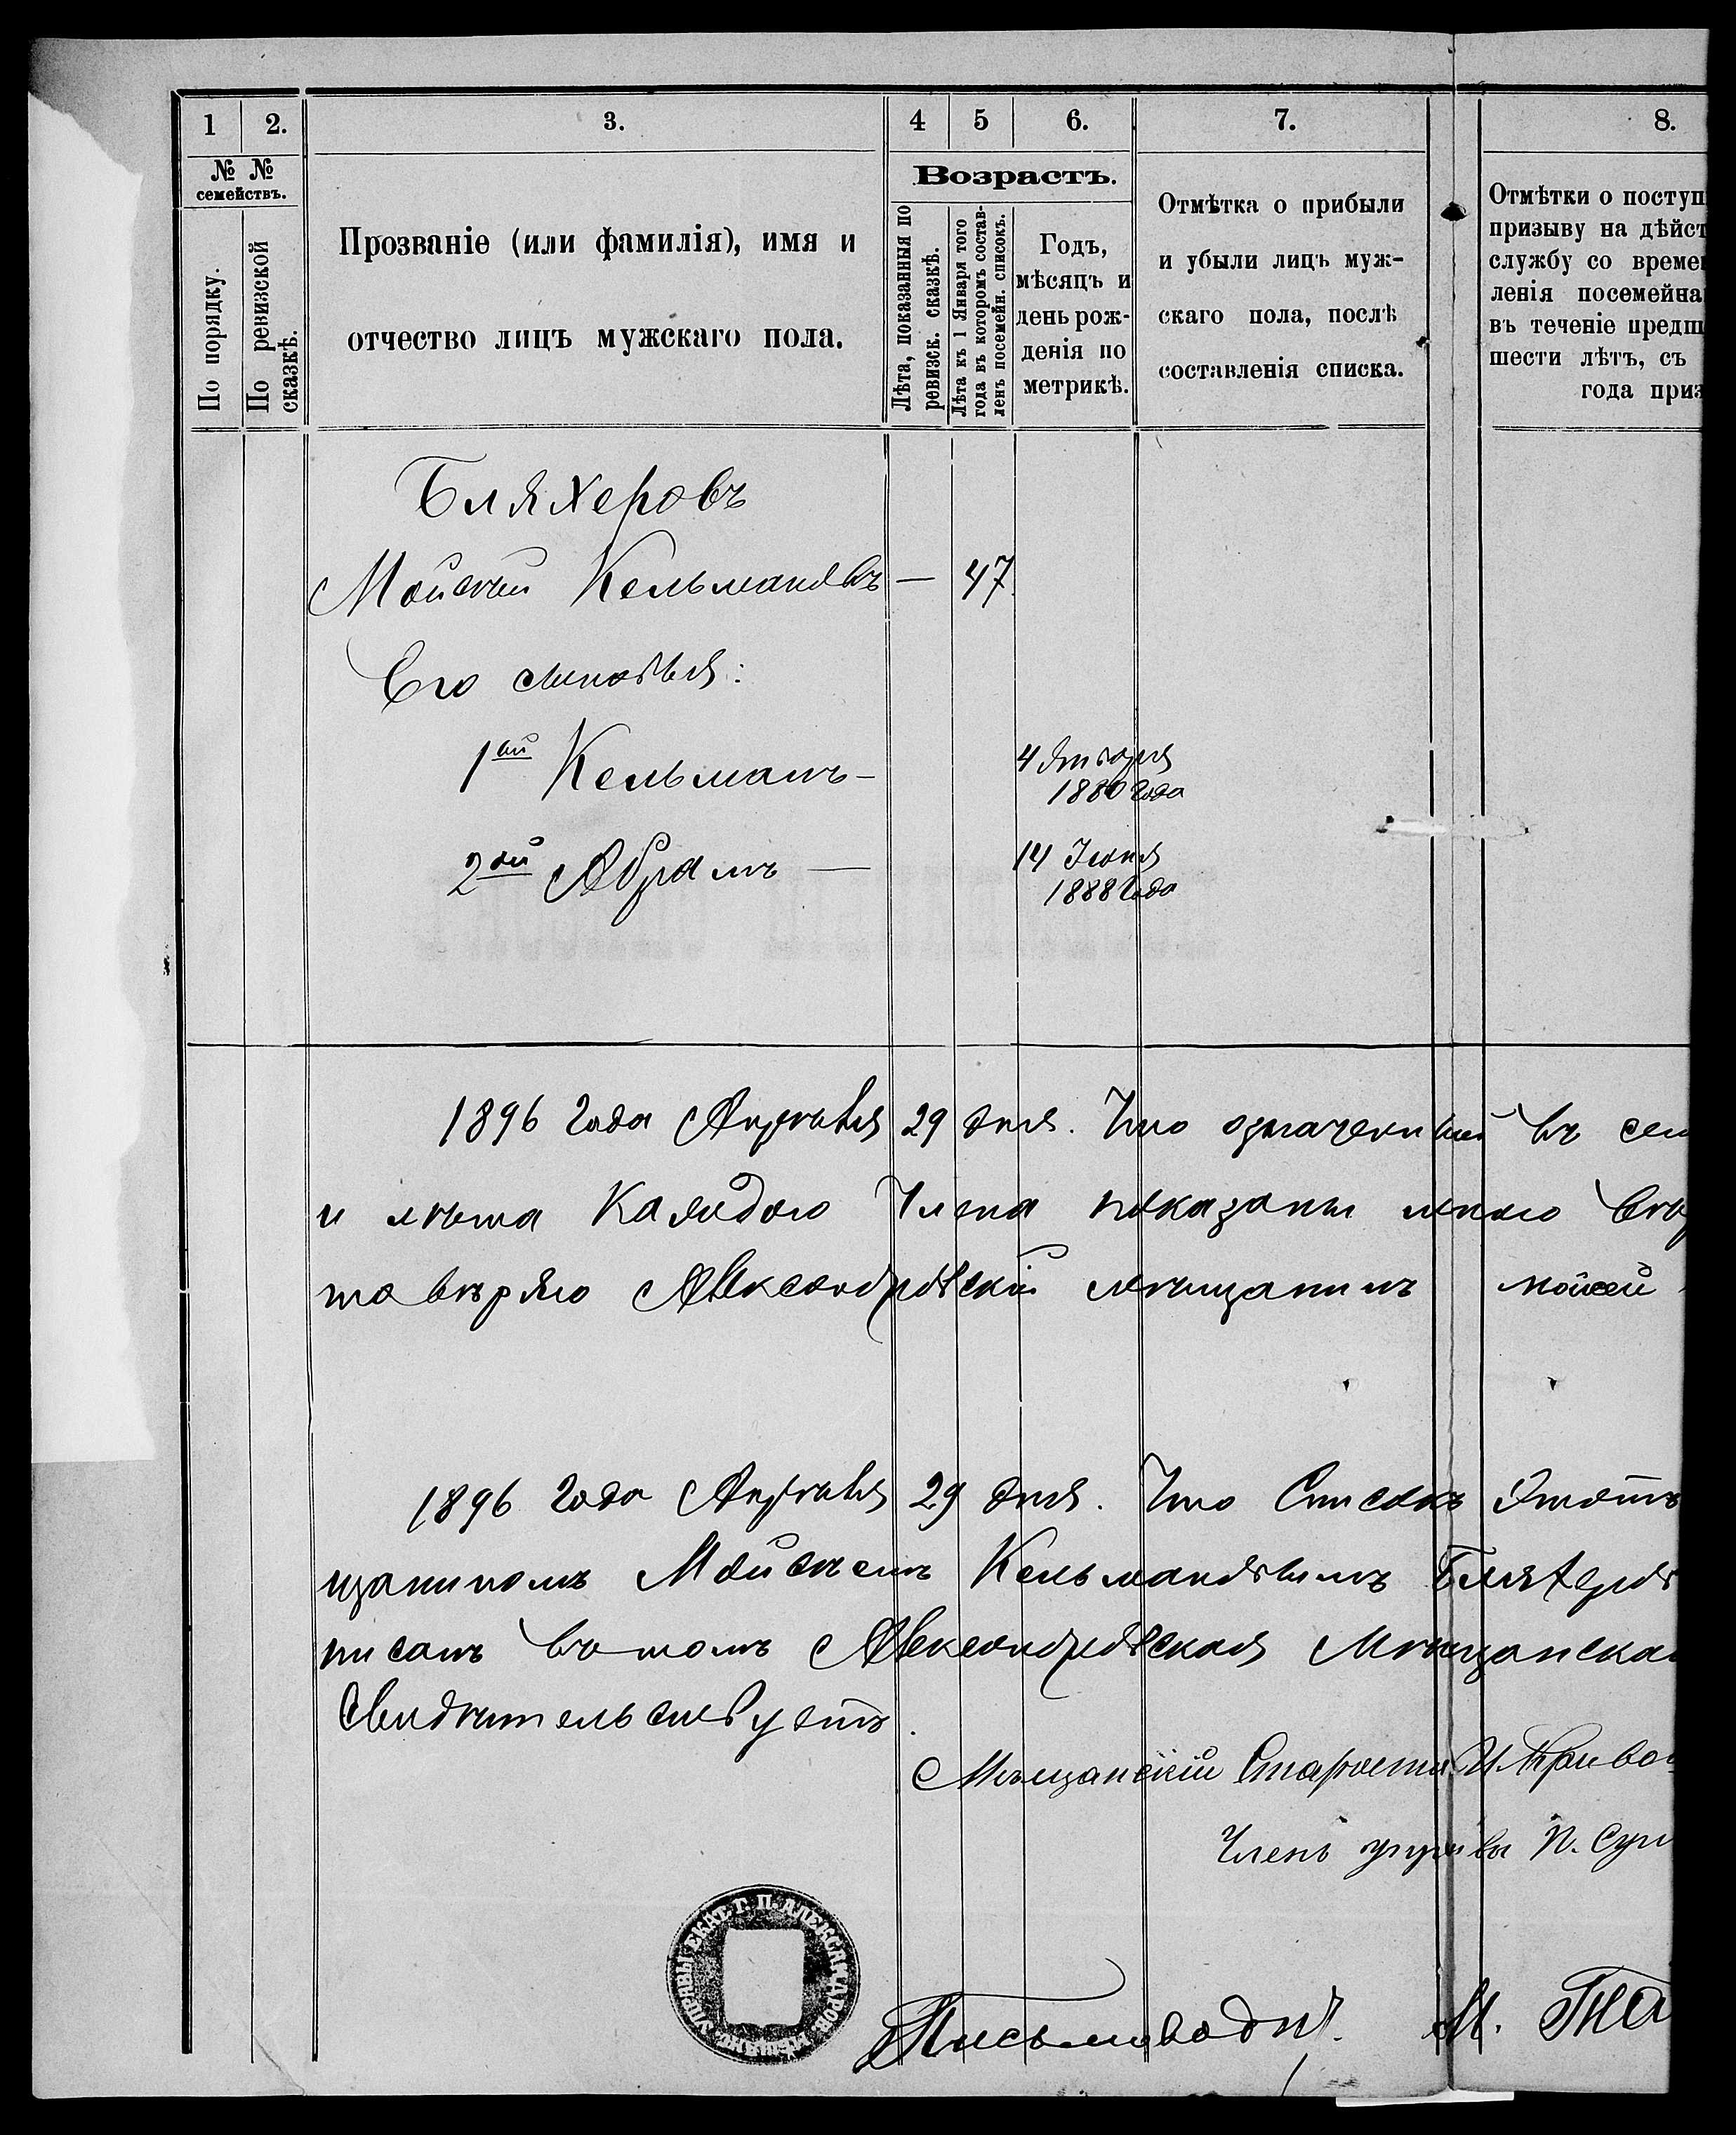 1 2. 3. 4 5 6. 7. 8.
№ № семействъ.
По порядку.
По ревизской сказкѣ.
Прозваніе (или фамилія), имя и
отчество лицъ мужскаго пола.
Возрастъ.
Лѣта, показанныя по
ревизск. сказкѣ.
Лѣта къ 1 Января того
года въ которомъ состав-
ленъ посемейн. списокъ.
Годъ,
мѣсяцъ и
день рож-
денія по
метрикѣ.
Отмѣтка о прибыли
и убыли лицъ муж-
скаго пола, послѣ
составленія списка.
Отмѣтки о поступ
призыву на дѣйст
службу со време
ленія посемейна
въ теченіе предш
шести лѣтъ, съ
года приз
Бляхеровъ
Мойсѣй Кельмановъ — 47
Его сыновья:
1ый Кельманъ — 4 Января
1880 года
2ой Абрамъ — 14 Іюня
1888 года
1896 года Апрѣля 29 дня. Что означенный въ сем
и лѣта каждого Члена показаны мною
товѣряю Александровскій мѣщанинъ Мойсей
1896 года Апрѣля 29 дня. Что Списокъ Этотъ
щаниномъ Мойсѣемъ Кельмановымъ Бляхеров
писанъ въ томъ Александровская Мѣщанская
Свидѣтельствуетъ.
Мѣщанскій Староста И. Криво
Членъ управы П. Сух
УПРАВЫ ЕКАТ. Г. П. АЛЕКСАНДРОВ. МѢЩАНС.
Письмоводит. М. Та